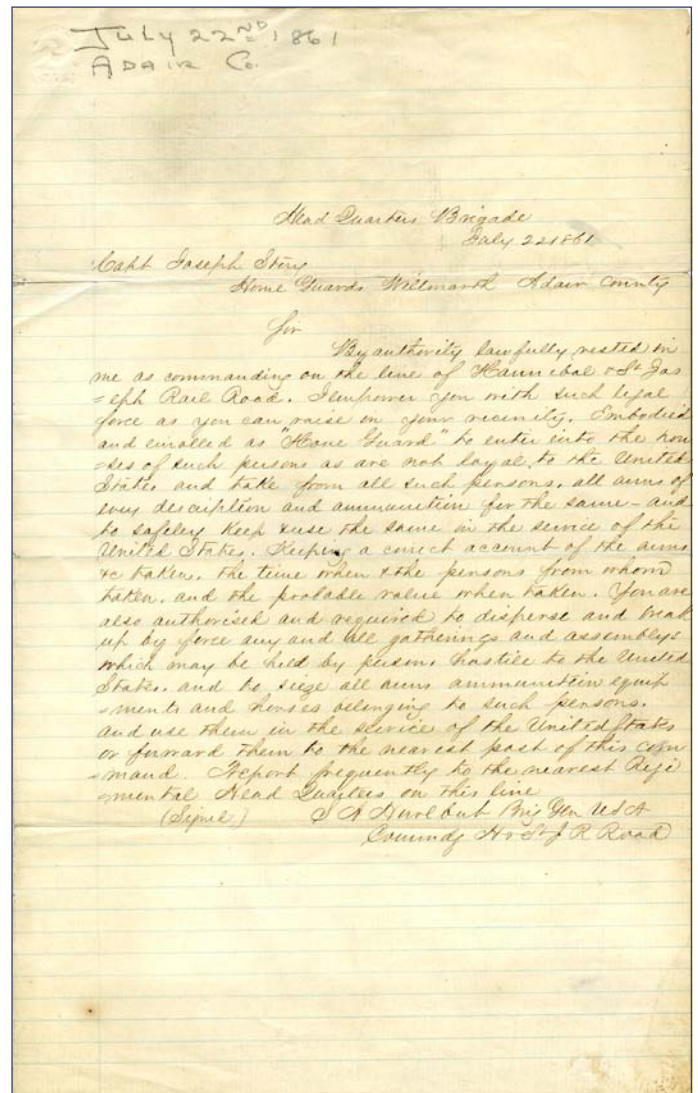 July 22ND 1861
Adair Co.
Head Quarters Brigade
July 22 1861
Capt Joseph Story
Home Guards Willmarth Adair County
Sir
By authority lawfully vested in
me as commanding on the line of Hannibal & St Jos
=eph Rail Road. I empower you with such legal
force as you can raise in your vicinity. Embodied
and enrolled as "Home Guard" to enter into the hou
=ses of such persons as are not loyal, to the United
States and take from all such persons, all arms of
every description and ammunition for the same - and
to safeley keep & use the same in the service of the
United States. Keeping a correct account of the arms
&c taken, the time when & the persons from whom
taken, and the probable value when taken. You are
also authorised and required to disperse and break
up by force any and all gatherings and assemblys
which may be held by persons hostile to the United
States, and to seize all arms ammunition equip
=ments and horses belonging to such persons.
and use them in the service of the United States
or forward them to the nearest post of this com
=mand. Report frequently to the nearest Regi
=mental Head Quarters on this line
(Signed) S A Hurlbut Brig Gen USA
Commdg H & St J R Road